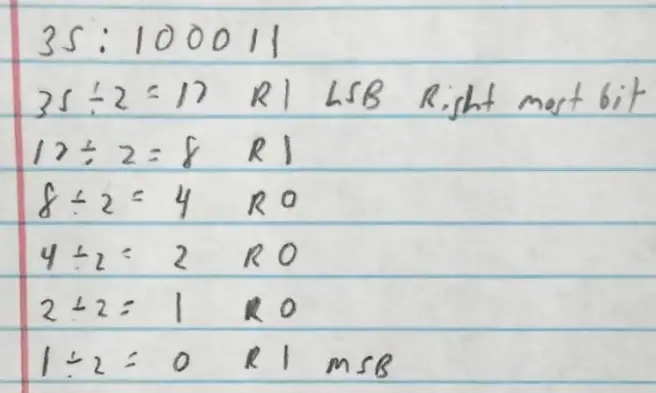 35: 100011
35 ÷ 2 = 17 R1 LSB Right most bit
17 ÷ 2 = 8 R1
8 ÷ 2 = 4 R0
4 ÷ 2 = 2 R0
2 ÷ 2 = 1 R0
1 ÷ 2 = 0 R1 MSB